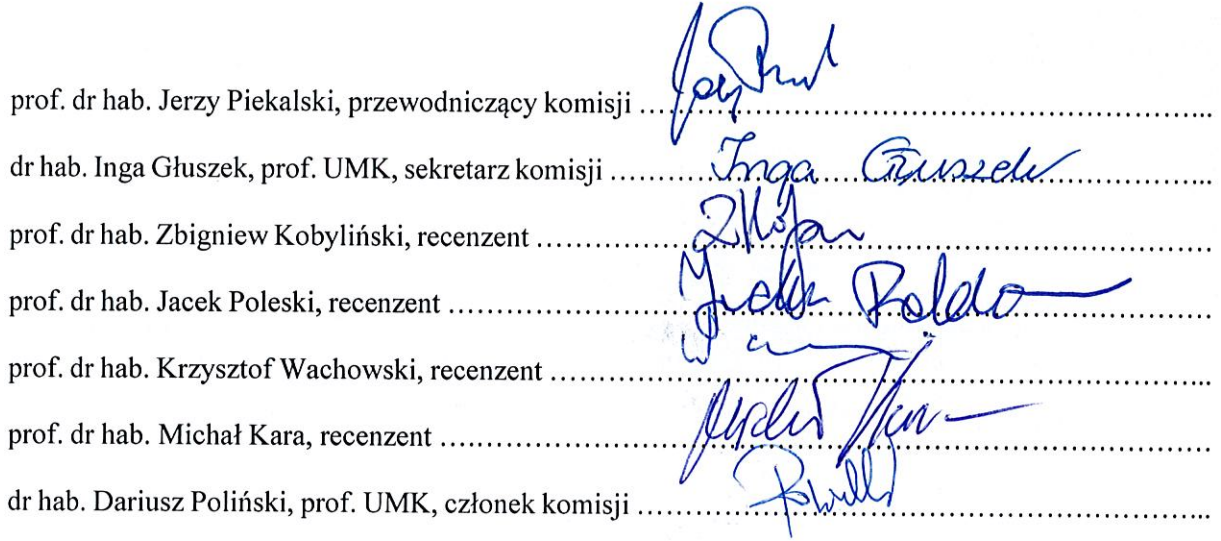 prof. dr hab. Jerzy Piekalski, przewodniczący komisji ........................................
dr hab. Inga Głuszek, prof. UMK, sekretarz komisji .......... Inga Głuszek ..........
prof. dr hab. Zbigniew Kobyliński, recenzent ........................................
prof. dr hab. Jacek Poleski, recenzent ........................................
prof. dr hab. Krzysztof Wachowski, recenzent ........................................
prof. dr hab. Michał Kara, recenzent ........................................
dr hab. Dariusz Poliński, prof. UMK, członek komisji ........................................